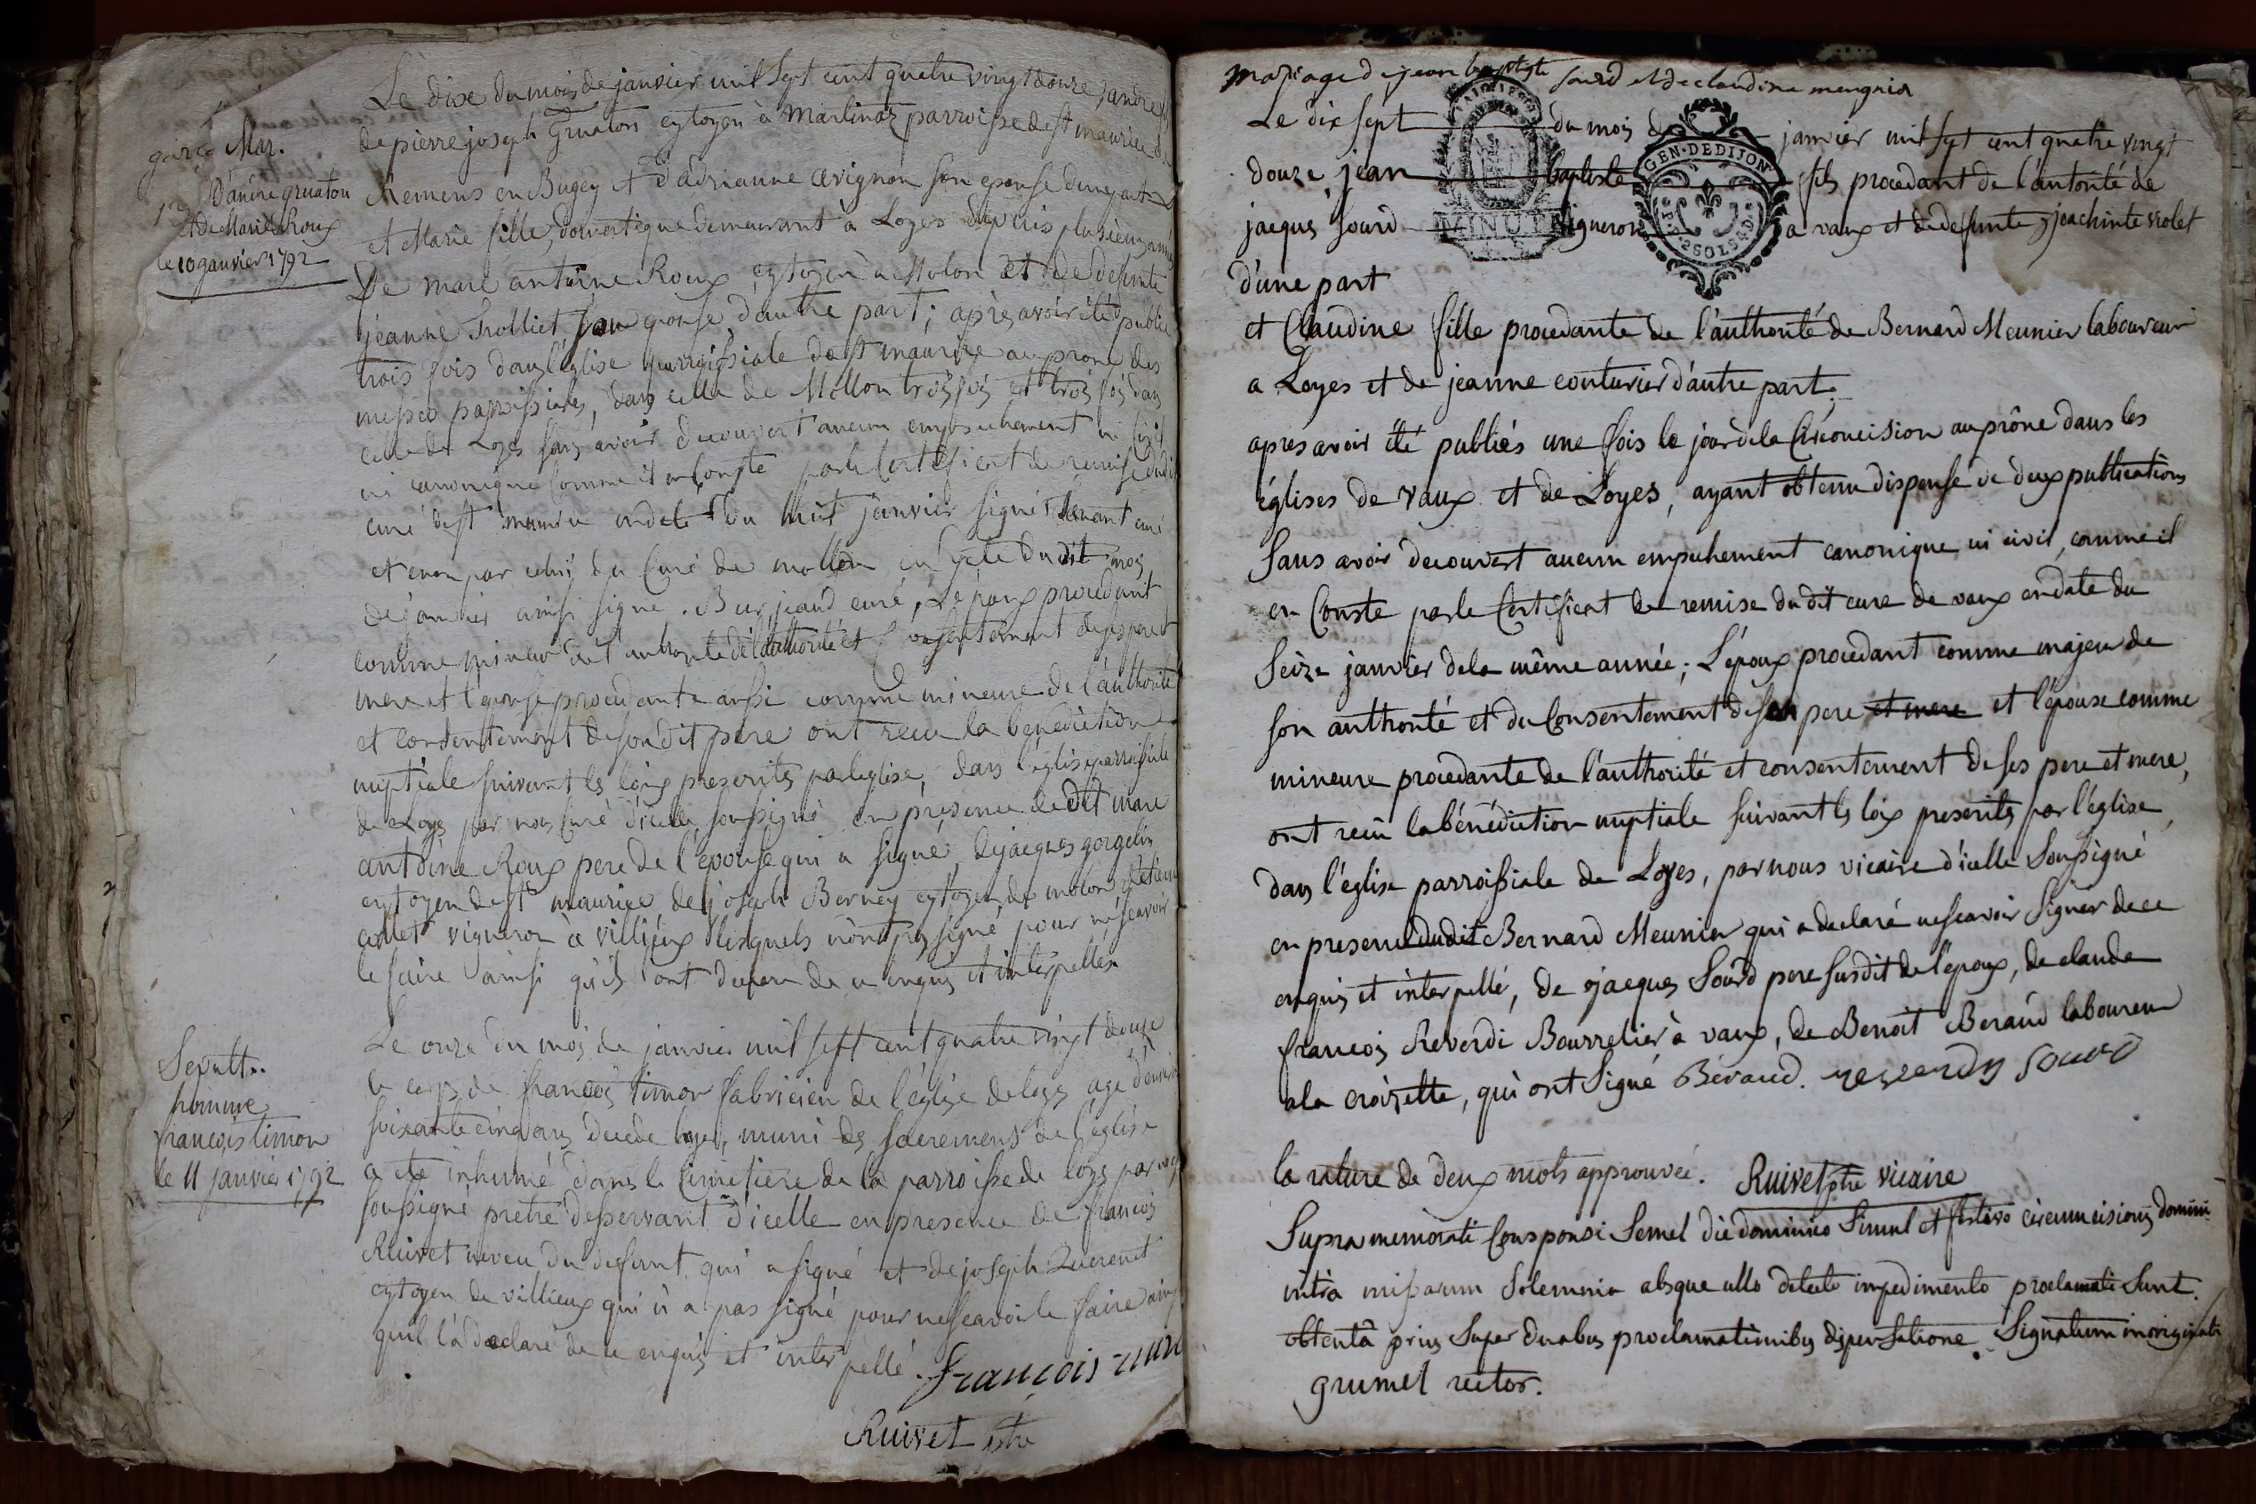 garco Mar.
D'andré gruaton
et de Marie Roux
le 10 janvier 1792
Le dixe du mois de janvier mil sept cent quatre vingt douze, andré
de pierre joseph Gruaton cytoyen à Martinaz parroisse de st maurice de
Remens en Bugey et d'adrianne avignon son epouse d'une part
et Marie fille, domestique demeurant à Loyes depuis plusieurs années
De marc antoine Roux, cytoyen à Molon et de defunte
jeanne Trolliet son epouse d'autre part; après avoir été publié
trois fois dans l'église parroissiale de st maurice au prone des
messes parroissiales, dans celle de Mollon trois fois et trois fois dans
celle de Loyes sans avoir decouvert aucun empechement ni civil
ni canonique comme il en conste par le certificat de remise dudit
curé de st maurice en date du huit janvier signé curé
et encor par celuy du curé de mollon en date du dit mois
de janvier ainsi signé. Burjeaud curé, L'époux procedant
comme mineur de l'authorité et consentement de ses pere et
mere et l'epouse procedante aussi comme mineure de l'authorité
et consentement de son dit pere ont recu la benediction
nuptiale suivant les loix prescrites par l'eglise, dans l'église parroissiale
de Loyes par nous curé d'icelle soussigné en presence de dit marc
antoine Roux pere de l'epouse qui a signé, de jacques gorgelin
cytoyen de st maurice de joseph Berney cytoyen de molon
collet vigneron à villieux lesquels n'ont pas signé pour ne scavoir
le faire ainsi qu'ils ont declaré de ce enquis et interpellés.
Sepult..
homme
françois timon
le 11 janvier 1792
Le onze du mois de janvier mil sept cent quatre vingt douze
le corps de francois timon fabricien de l'église de loyes age d'environ
soixante cinq ans decedé loyes, muni des sacremens de l'église
a été inhumé dans le cimetiere de la parroisse de loyes par nous
soussigné pretre desservant d'icelle en presence de francois
Ruivet neveu du defunt qui a signé et de joseph Querenet
cytoyen de villieux qui n'a pas signé pour ne scavoir le faire ainsi
quil l'a déclaré de ce enquis et interpellé.
françois
Ruivet ptre
mariage de jean baptiste sourd et de claudine meugnier
Le dix sept du mois de janvier mil sept cent quatre vingt
douze, jean baptiste fils procedant de l'autorité de
jacques sourd vigneron a vaux et de defunte joachinte violet
d'une part
GEN·DEDIJON
MINUT
et Claudine fille procedante de l'authorité de Bernard Meunier laboureur
a Loyes et de jeanne couturier d'autre part.
apres avoir été publiés une fois le jour de la Circoncision au prône dans les
églises de vaux et de Loyes, ayant obtenu dispense de deux publications
sans avoir decouvert aucun empechement canonique ni civil, comme il
en Conste par le Certificat de remise du dit cure de vaux en date du
seize janvier de la même année; L'époux procedant comme majeur de
son authorité et du Consentement de son pere et mere et l'épouse comme
mineure procedante de l'authorité et consentement de ses pere et mere,
ont recû la bénédiction nuptiale suivant les loix prescrites par l'église,
dans l'église parroissiale de Loyes, par nous vicaire d'icelle soussigné
en presence dudit Bernard Meunier qui a declaré ne scavoir signer de ce
enquis et interpellé, de jacques Sourd pere susdit de l'époux, de claude
francois Reverdi Bourrelier à vaux, de Benoît Beraud laboureur
a la croizette, qui ont signé Béraud. reverdy sourd
la rature de deux mots approuvée. Ruivet ptre vicaire
Supra memorati Consponsi Semel die dominico Simul et festivo circumcisionis domini
intra missarum Solemnia absque ullo detecto impedimento proclamati Sunt.
obtentâ prius Super duabus proclamationibus dispensatione. Signatum in originali
grumel rector.